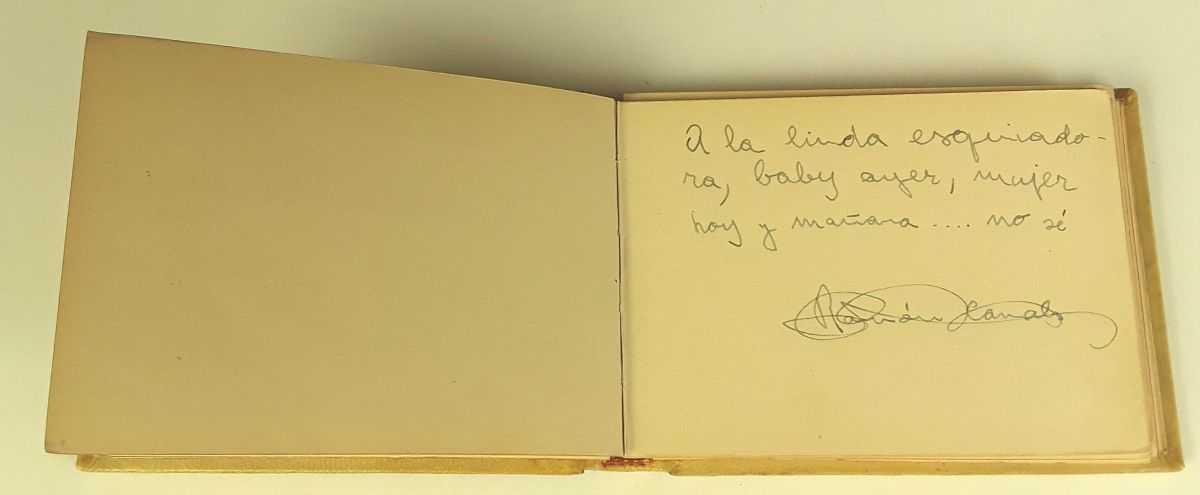 A la linda esquiado-
ra, baby ayer, mujer
hoy y mañana .... no sé
Ramón Canals